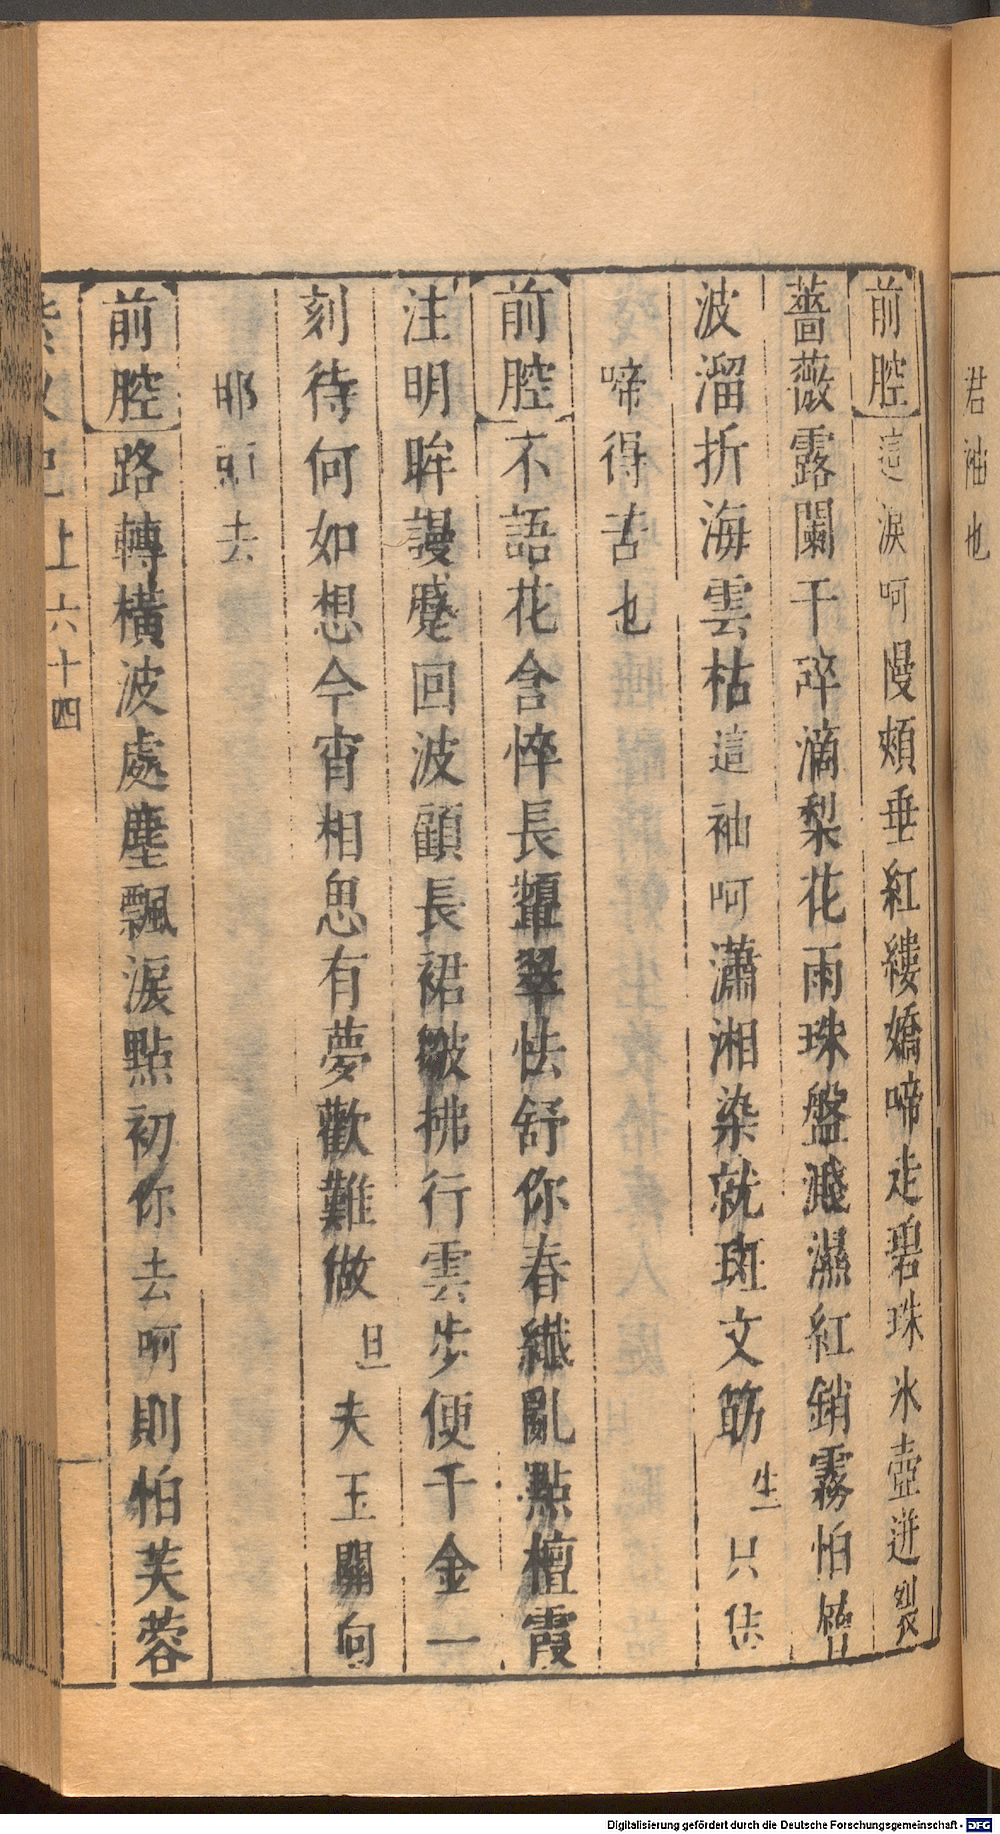 君袖也
前腔這淚呵慢頰垂紅縷嬌啼走碧珠氷壺迸裂
薔薇露闌干碎滴梨花雨珠盤濺濕紅銷霧怕層
波溜折海雲枯這袖呵瀟湘染就斑文筯生只恁
啼得苦也
前腔不語花含悴長顰翠怯舒你春纖亂點檀霞
注明眸謾蹙回波顧長裙皺拂行雲步便千金一
刻待何如想今宵相思有夢歡難做旦夫玉關向
那頭去
前腔路轉橫波處塵飄淚點初你去呵則怕芙蓉
上六十四
Digitalisierung gefördert durch die Deutsche Forschungsgemeinschaft - DFG